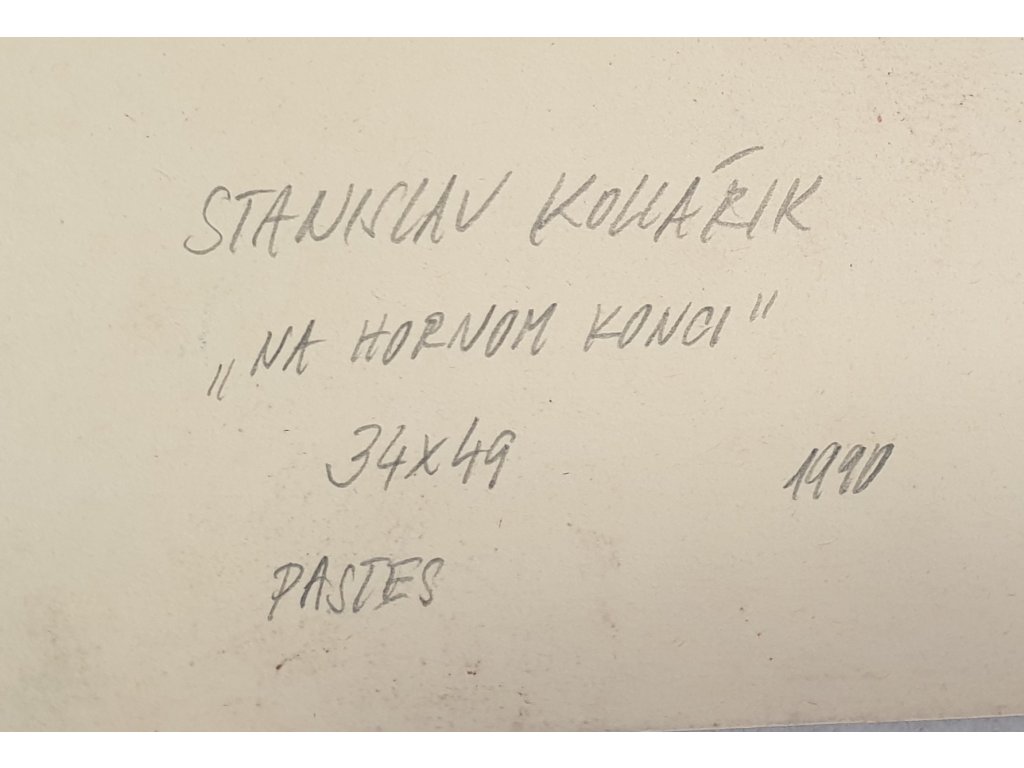 STANISLAV KOLLÁRIK
„NA HORNOM KONCI"
34x49 1990
PASTES